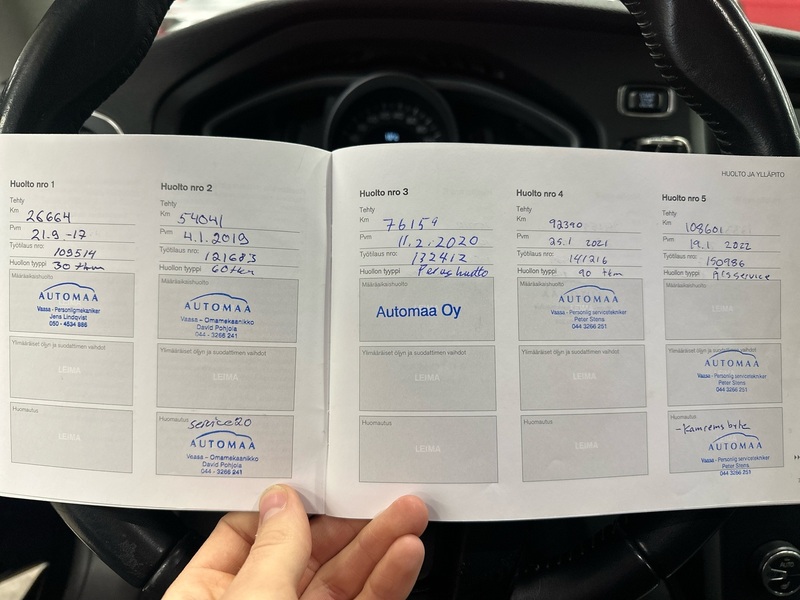 HUOLTO JA YLLÄPITO
Huolto nro 1
Tehty
Km 26664
Pvm 21.9 -17
Työtilaus nro: 109514
Huollon tyyppi 30 tkm
Määräaikaishuolto
AUTOMAA
Vaasa - Personligmekaniker
Jens Lindqvist
050 - 4534 886
Ylimääräiset öljyn ja suodattimen vaihdot
LEIMA
Huomautus
LEIMA
Huolto nro 2
Tehty
Km 54041
Pvm 4.1.2019
Työtilaus nro: 121683
Huollon tyyppi 60 tkm
Määräaikaishuolto
AUTOMAA
Vaasa - Omamekaanikko
David Pohjola
044 - 3266 241
Ylimääräiset öljyn ja suodattimen vaihdot
LEIMA
Huomautus
service 2.0
AUTOMAA
Vaasa - Omamekaanikko
David Pohjola
044 - 3266 241
Huolto nro 3
Tehty
Km 76159
Pvm 11.2.2020
Työtilaus nro: 132412
Huollon tyyppi Perushuolto
Määräaikaishuolto
Automaa Oy
Ylimääräiset öljyn ja suodattimen vaihdot
LEIMA
Huomautus
LEIMA
Huolto nro 4
Tehty
Km 92390
Pvm 25.1 2021
Työtilaus nro: 141216
Huollon tyyppi 90 tkm
Määräaikaishuolto
AUTOMAA
Vaasa - Personlig servicetekniker
Peter Stens
044 3266 251
Ylimääräiset öljyn ja suodattimen vaihdot
LEIMA
Huomautus
LEIMA
Huolto nro 5
Tehty
Km 108601
Pvm 19.1. 2022
Työtilaus nro: 150986
Huollon tyyppi Årsservice
Määräaikaishuolto
LEIMA
Ylimääräiset öljyn ja suodattimen vaihdot
AUTOMAA
Vaasa - Personlig servicetekniker
Peter Stens
044 3266 251
Huomautus
-Kamremsbyte
AUTOMAA
Vaasa - Personlig servicetekniker
Peter Stens
044 3266 251